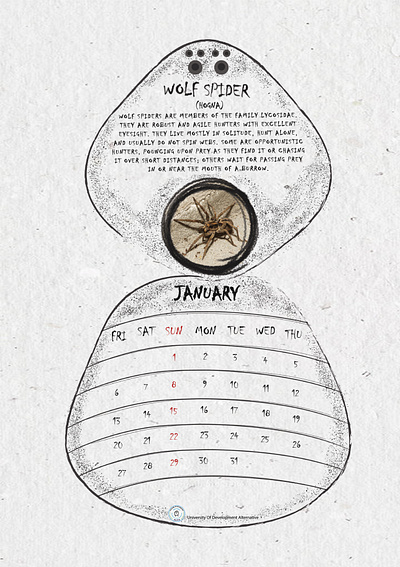 WOLF SPIDER
(HOGNA)
WOLF SPIDERS ARE MEMBERS OF THE FAMILY LYCOSIDAE.
THEY ARE ROBUST AND AGILE HUNTERS WITH EXCELLENT
EYESIGHT. THEY LIVE MOSTLY IN SOLITUDE, HUNT ALONE,
AND USUALLY DO NOT SPIN WEBS. SOME ARE OPPORTUNISTIC
HUNTERS, POUNCING UPON PREY AS THEY FIND IT OR CHASING
IT OVER SHORT DISTANCES; OTHERS WAIT FOR PASSING PREY
IN OR NEAR THE MOUTH OF A BURROW.
JANUARY
FRI SAT SUN MON TUE WED THU
1 2 3 4 5
6 7 8 9 10 11 12
13 14 15 16 17 18 19
20 21 22 23 24 25 26
27 28 29 30 31
University Of Development Alternative